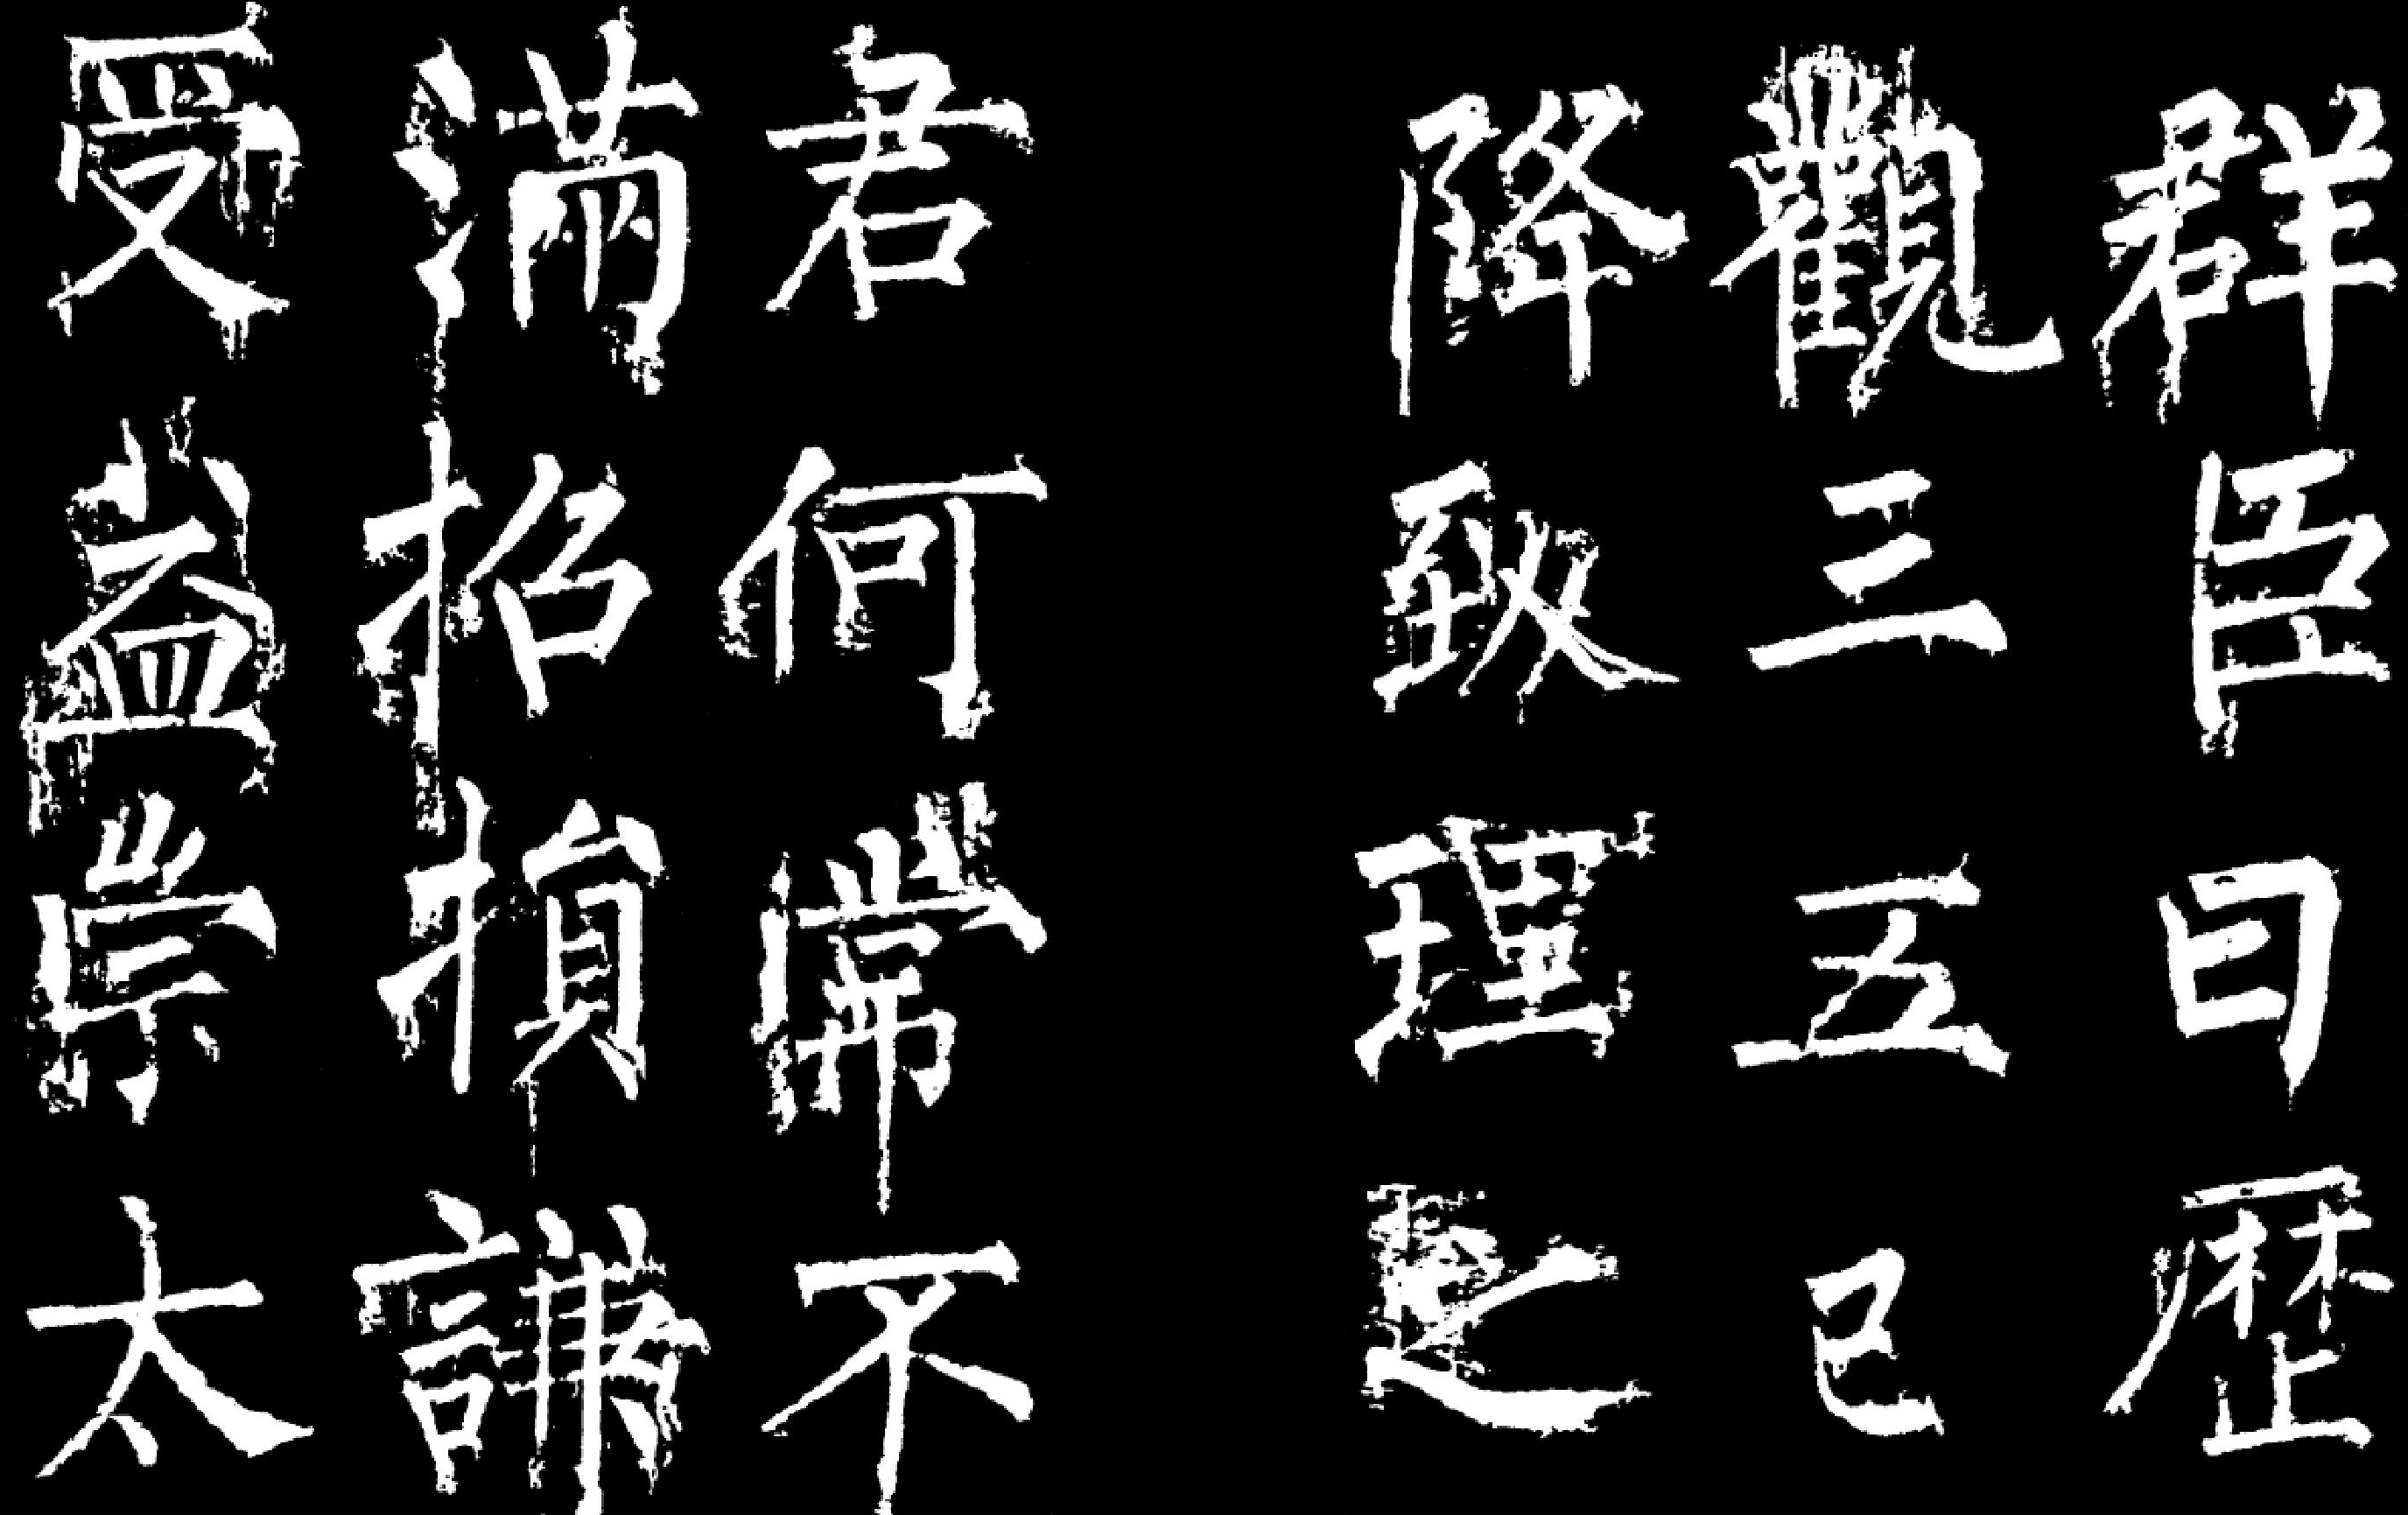 群臣曰歷
觀三五已
降致理之
君何常不
滿招損謙
受益崇太